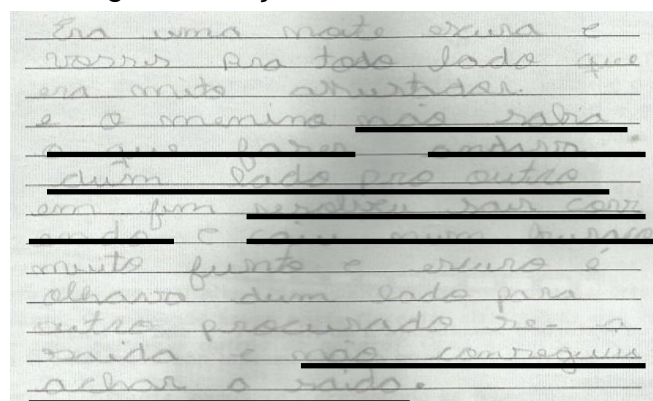 Era uma noite escura e
vozes pra todo lado que
era muito
e o menino não sabia
o que fazer andava
dum lado pro outro
em fim resolveu sair corr
endo e caiu num buraco
muito funto e escuro é
olhava dum lado pra
outro procurado
saida e não conseguiu
achar a saida.